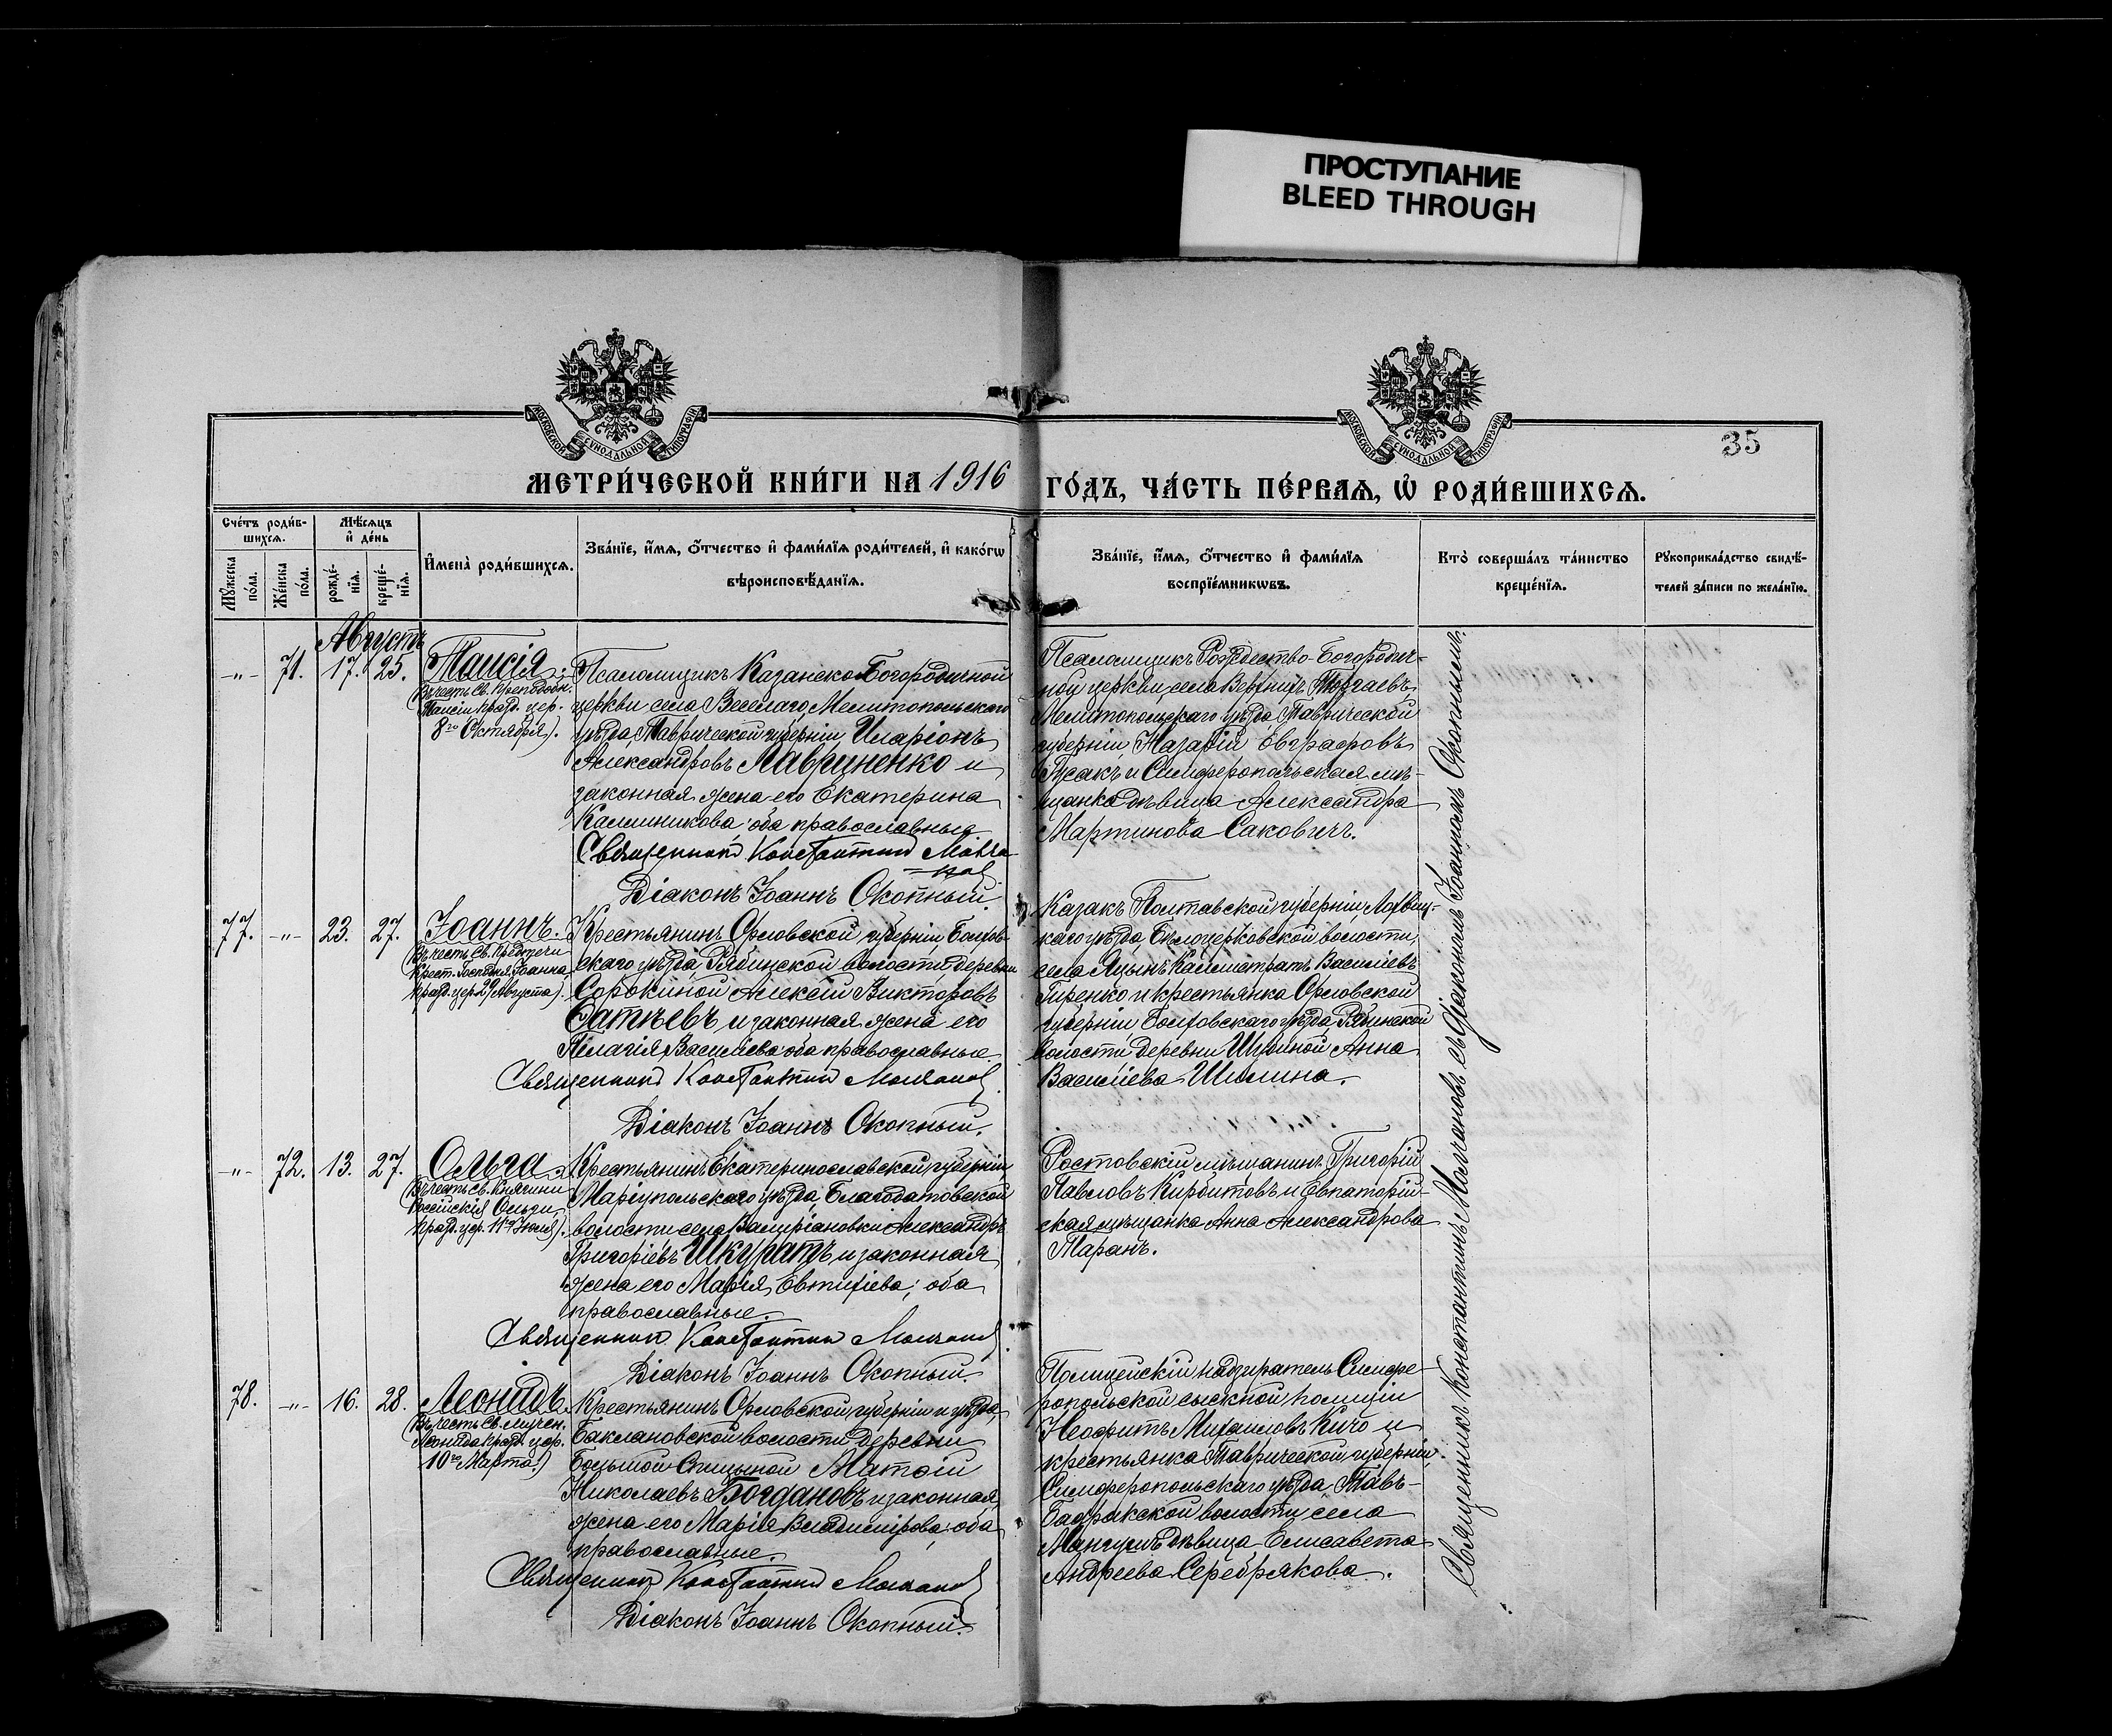 ПРОСТУПАНИЕ
BLEED THROUGH
МОСКОВСКОЙ СѴНОДАЛЬНОЙ ТИПОГРАФІИ
МОСКОВСКОЙ СѴНОДАЛЬНОЙ ТИПОГРАФІИ
35
МЕТРИ́ЧЕСКОЙ КНИ́ГИ НА 1916 ГО́ДЪ, ЧА́СТЬ ПЕ́РВАѦ, Ѡ҆ РОДИ́ВШИХСѦ.
Сче́тъ роди́в-
шихсѧ.
Мѣ́сѧцъ
и҆ де́нь
Мꙋ́жеска
по́ла.
Же́нска
по́ла.
рожде́-
нїѧ.
креще́-
нїѧ.
И҆мена̀ роди́вшихсѧ.
Зва́нїе, и҆́мѧ, ѻ҆́тчество и҆ фами́лїѧ роди́телей, и҆ како́гѡ
вѣроисповѣ́данїѧ.
Зва́нїе, и҆́мѧ, ѻ҆́тчество и҆ фами́лїѧ
воспрїе́мникѡвъ.
Кто̀ соверша́лъ та́инство
креще́нїѧ.
Рꙋкоприкла́дство свидѣ́-
телей за́писи по жела́нїю.
Августъ
-"- 71. 17. 25. Таисія.
Въ честь Св. Преподобн.
Таисіи празд. цер.
8го Октября).
Псаломщикъ Казанско-Богородичной
церкви села Веселаго, Мелитопольскаго
уѣзда, Таврической губерніи Иларіонъ
Александровъ Лавриненко и
законная жена его Екатерина
Калинникова; оба православные.
Священникъ Константинъ Молча-
новъ
Діаконъ Іоаннъ Окопный.
Псаломщикъ Рождество-Богородич-
ной церкви села Верхнихъ Торгаевъ,
Мелитопольскаго уѣзда Таврической
губерніи Назарій Евграфовъ
Гусакъ и Симферопольская мѣ-
щанка дѣвица Александра
Мартинова Саковичъ.
77. -"- 23. 27. Іоаннъ.
Въ честь Св. Предтечи
Крест. Господня Іоанна
празд. цер. 29 Августа).
Крестьянинъ Орловской губерніи Болхов-
скаго уѣзда, Рябинской волости, деревни
Сорокиной Алексій Викторовъ
Батѣевъ и законная жена его
Пелагія Васильева оба православные.
Священникъ Константинъ Молчановъ
Діаконъ Іоаннъ Окопный.
Казакъ Полтавской губерніи, Лохвиц-
каго уѣзда, Бѣлоцерковской волости,
села Яцынъ Каллистратъ Васильевъ
Гиренко и крестьянка Орловской
губерніи Болховскаго уѣзда, Рябинской
волости деревни Шлиной Анна
Васильева Шилина.
-"- 72. 13. 27. Ольга.
Въ честь Св. Княгини
Россійскія Ольги,
празд. цер. 11го Іюля).
Крестьянинъ Екатеринославской губерніи
Маріупольскаго уѣзда, Благодатовской
волости села Валуріановки Александръ
Григорьевъ Шкуратъ и законная
жена его Марія Евтихіева; оба
православные.
Священникъ Константинъ Молчановъ
Діаконъ Іоаннъ Окопный.
Ростовскій мѣщанинъ Григорій
Павловъ Кирбитовъ и Евпаторій-
ская мѣщанка Анна Александрова
Таранъ.
78. -"- 16. 28. Леонидъ.
Въ честь Св. Мучен.
Леонида празд. цер.
10го Марта.)
Крестьянинъ Орловской губерніи и уѣзда,
Баклановской волости деревни
Большой Спицыной Матѳій
Николаевъ Богдановъ и законная
жена его Марія Владимірова; оба
православные.
Священникъ Константинъ Молчановъ
Діаконъ Іоаннъ Окопный.
Полицейскій надзиратель Симфе-
ропольской сыскной полиціи
Неофитъ Михаиловъ Кичо и
крестьянка Таврической губерніи,
Симферопольскаго уѣзда, Тавъ-
Бадракской волости села
Мангушъ дѣвица Елисавета
Андреева Серебрякова.
Священникъ Константинъ Молчановъ съ діакономъ Іоанномъ Окопнымъ.